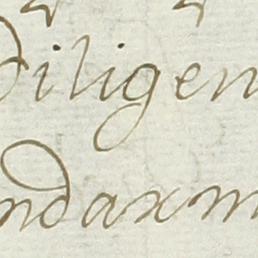 diligen
ndaxm